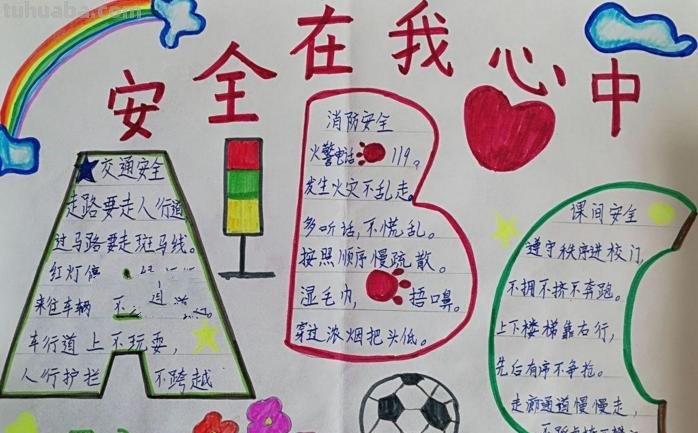 tuhuaba.com
安全在我心中
交通安全
走路要走人行道
过马路要走斑马线。
红灯停
来往车辆
车行道上不玩耍，
人行护栏 不跨越
消防安全
火警电话 119。
发生火灾不乱走。
多听话，不慌乱。
按照顺序慢疏散。
湿毛巾， 捂口鼻。
穿过浓烟把头低。
课间安全
遵守秩序进校门，
不拥不挤不奔跑。
上下楼梯靠右行，
先后有序不争抢。
走廊通道慢慢走，